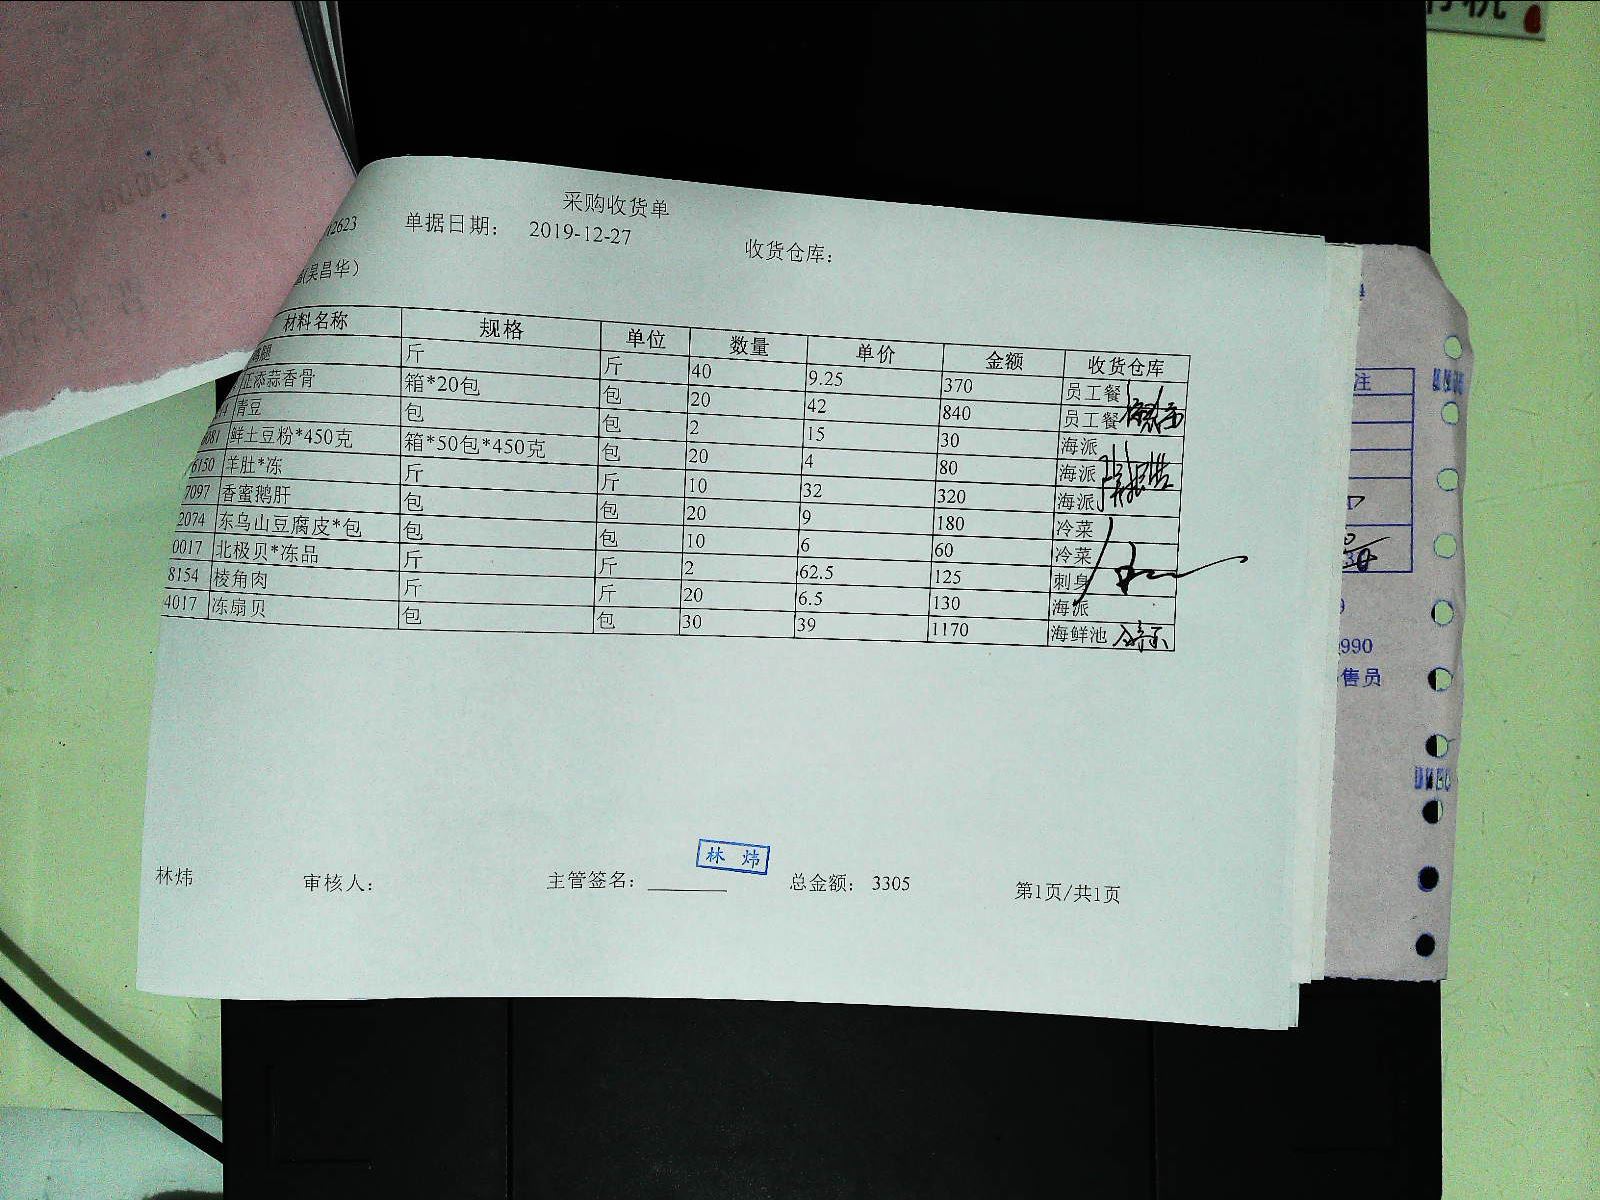 采购收货单
2623 单据日期： 2019-12-27 收货仓库：
(吴昌华)
材料名称 规格 单位 数量 单价 金额 收货仓库
腿 斤 斤 40 9.25 370 员工餐
正添蒜香骨 箱*20包 包 20 42 840 员工餐
青豆 包 包 2 15 30 海派
081 鲜土豆粉*450克 箱*50包*450克 包 20 4 80 海派
6150 羊肚*冻 斤 斤 10 32 320 海派
7097 香蜜鹅肝 包 包 20 9 180 冷菜
2074 东乌山豆腐皮*包 包 包 10 6 60 冷菜
0017 北极贝*冻品 斤 斤 2 62.5 125 刺身
8154 棱角肉 斤 斤 20 6.5 130 海派
4017 冻扇贝 包 包 30 39 1170 海鲜池
林炜
林炜 审核人： 主管签名： 总金额： 3305 第1页/共1页
注
990
售员